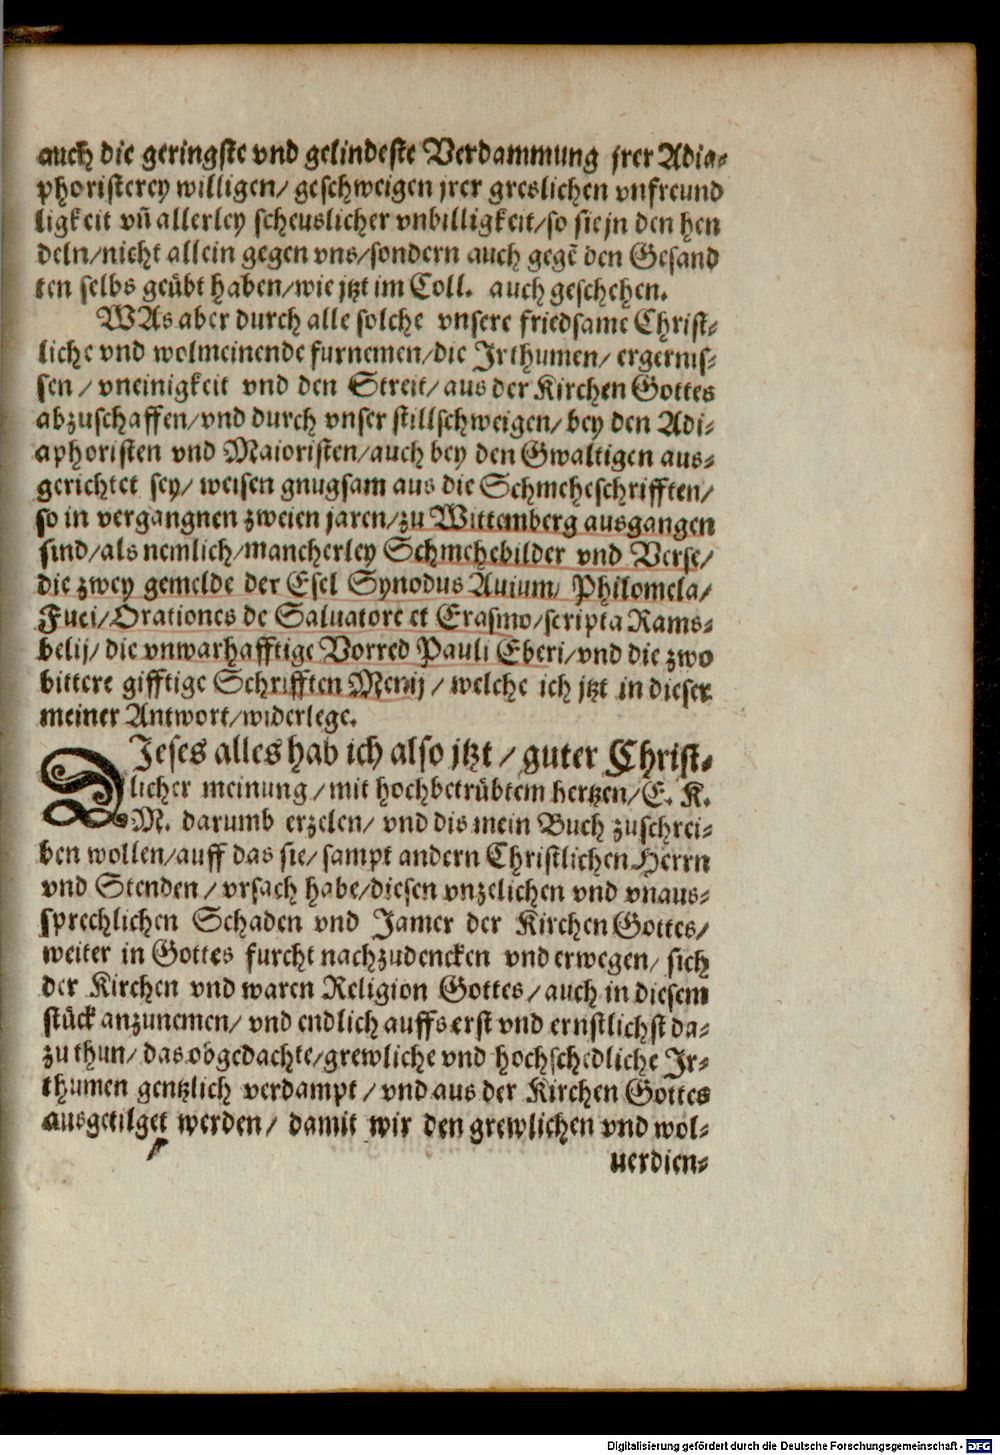 auch die geringste vnd gelindeste Verdammung jrer Adia⸗
phoristerey willigen/ geschweigen jrer greslichen vnfreund
ligkeit vñ allerley scheuslicher vnbilligkeit/so sie jn den hen
deln/nicht allein gegen vns/sondern auch gegẽ den Gesand
ten selbs geübt haben/wie jtzt im Coll. auch geschehen.
WAs aber durch alle solche vnsere friedsame Christ⸗
liche vnd wolmeinende furnemen/die Irthumen/ ergernis⸗
sen / vneinigkeit vnd den Streit/aus der Kirchen Gottes
abzuschaffen/vnd durch vnser stillschweigen/bey den Adi⸗
aphoristen vnd Maioristen/auch bey den Gwaltigen aus⸗
gerichtet sey/ weisen gnugsam aus die Schmeheschrifften/
so in vergangnen zweien jaren/zu Wittemberg ausgangen
sind/als nemlich/mancherley Schmehebilder vnd Verse/
die zwey gemelde der Esel Synodus Auium/ Philomela/
Fuci/Orationes de Saluatore et Erasmo/scripta Rams⸗
belij/die vnwarhafftige Vorred Pauli Eberi/vnd die zwo
bittere gifftige Schrifften Menij / welche ich jtzt in dieser
meiner Antwort/widerlege.
DIeses alles hab ich also jtzt / guter Christ⸗
licher meinung/mit hochbetrübtem hertzen/E. K.
M. darumb erzelen/ vnd dis mein Buch zuschrei⸗
ben wollen/auff das sie/ sampt andern Christlichen Herrn
vnd Stenden / vrsach habe/diesen vnzelichen vnd vnaus⸗
sprechlichen Schaden vnd Jamer der Kirchen Gottes/
weiter in Gottes furcht nachzudencken vnd erwegen/ sich
der Kirchen vnd waren Religion Gottes/auch in diesem
stück anzunemen/ vnd endlich auffs erst vnd ernstlichst da⸗
zu thun/ das obgedachte/grewliche vnd hochschedliche Ir⸗
thumen gentzlich verdampt / vnd aus der Kirchen Gottes
ausgetilget werden/ damit wir den grewlichen vnd wol⸗
uerdien⸗
Digitalisierung gefördert durch die Deutsche Forschungsgemeinschaft - DFG